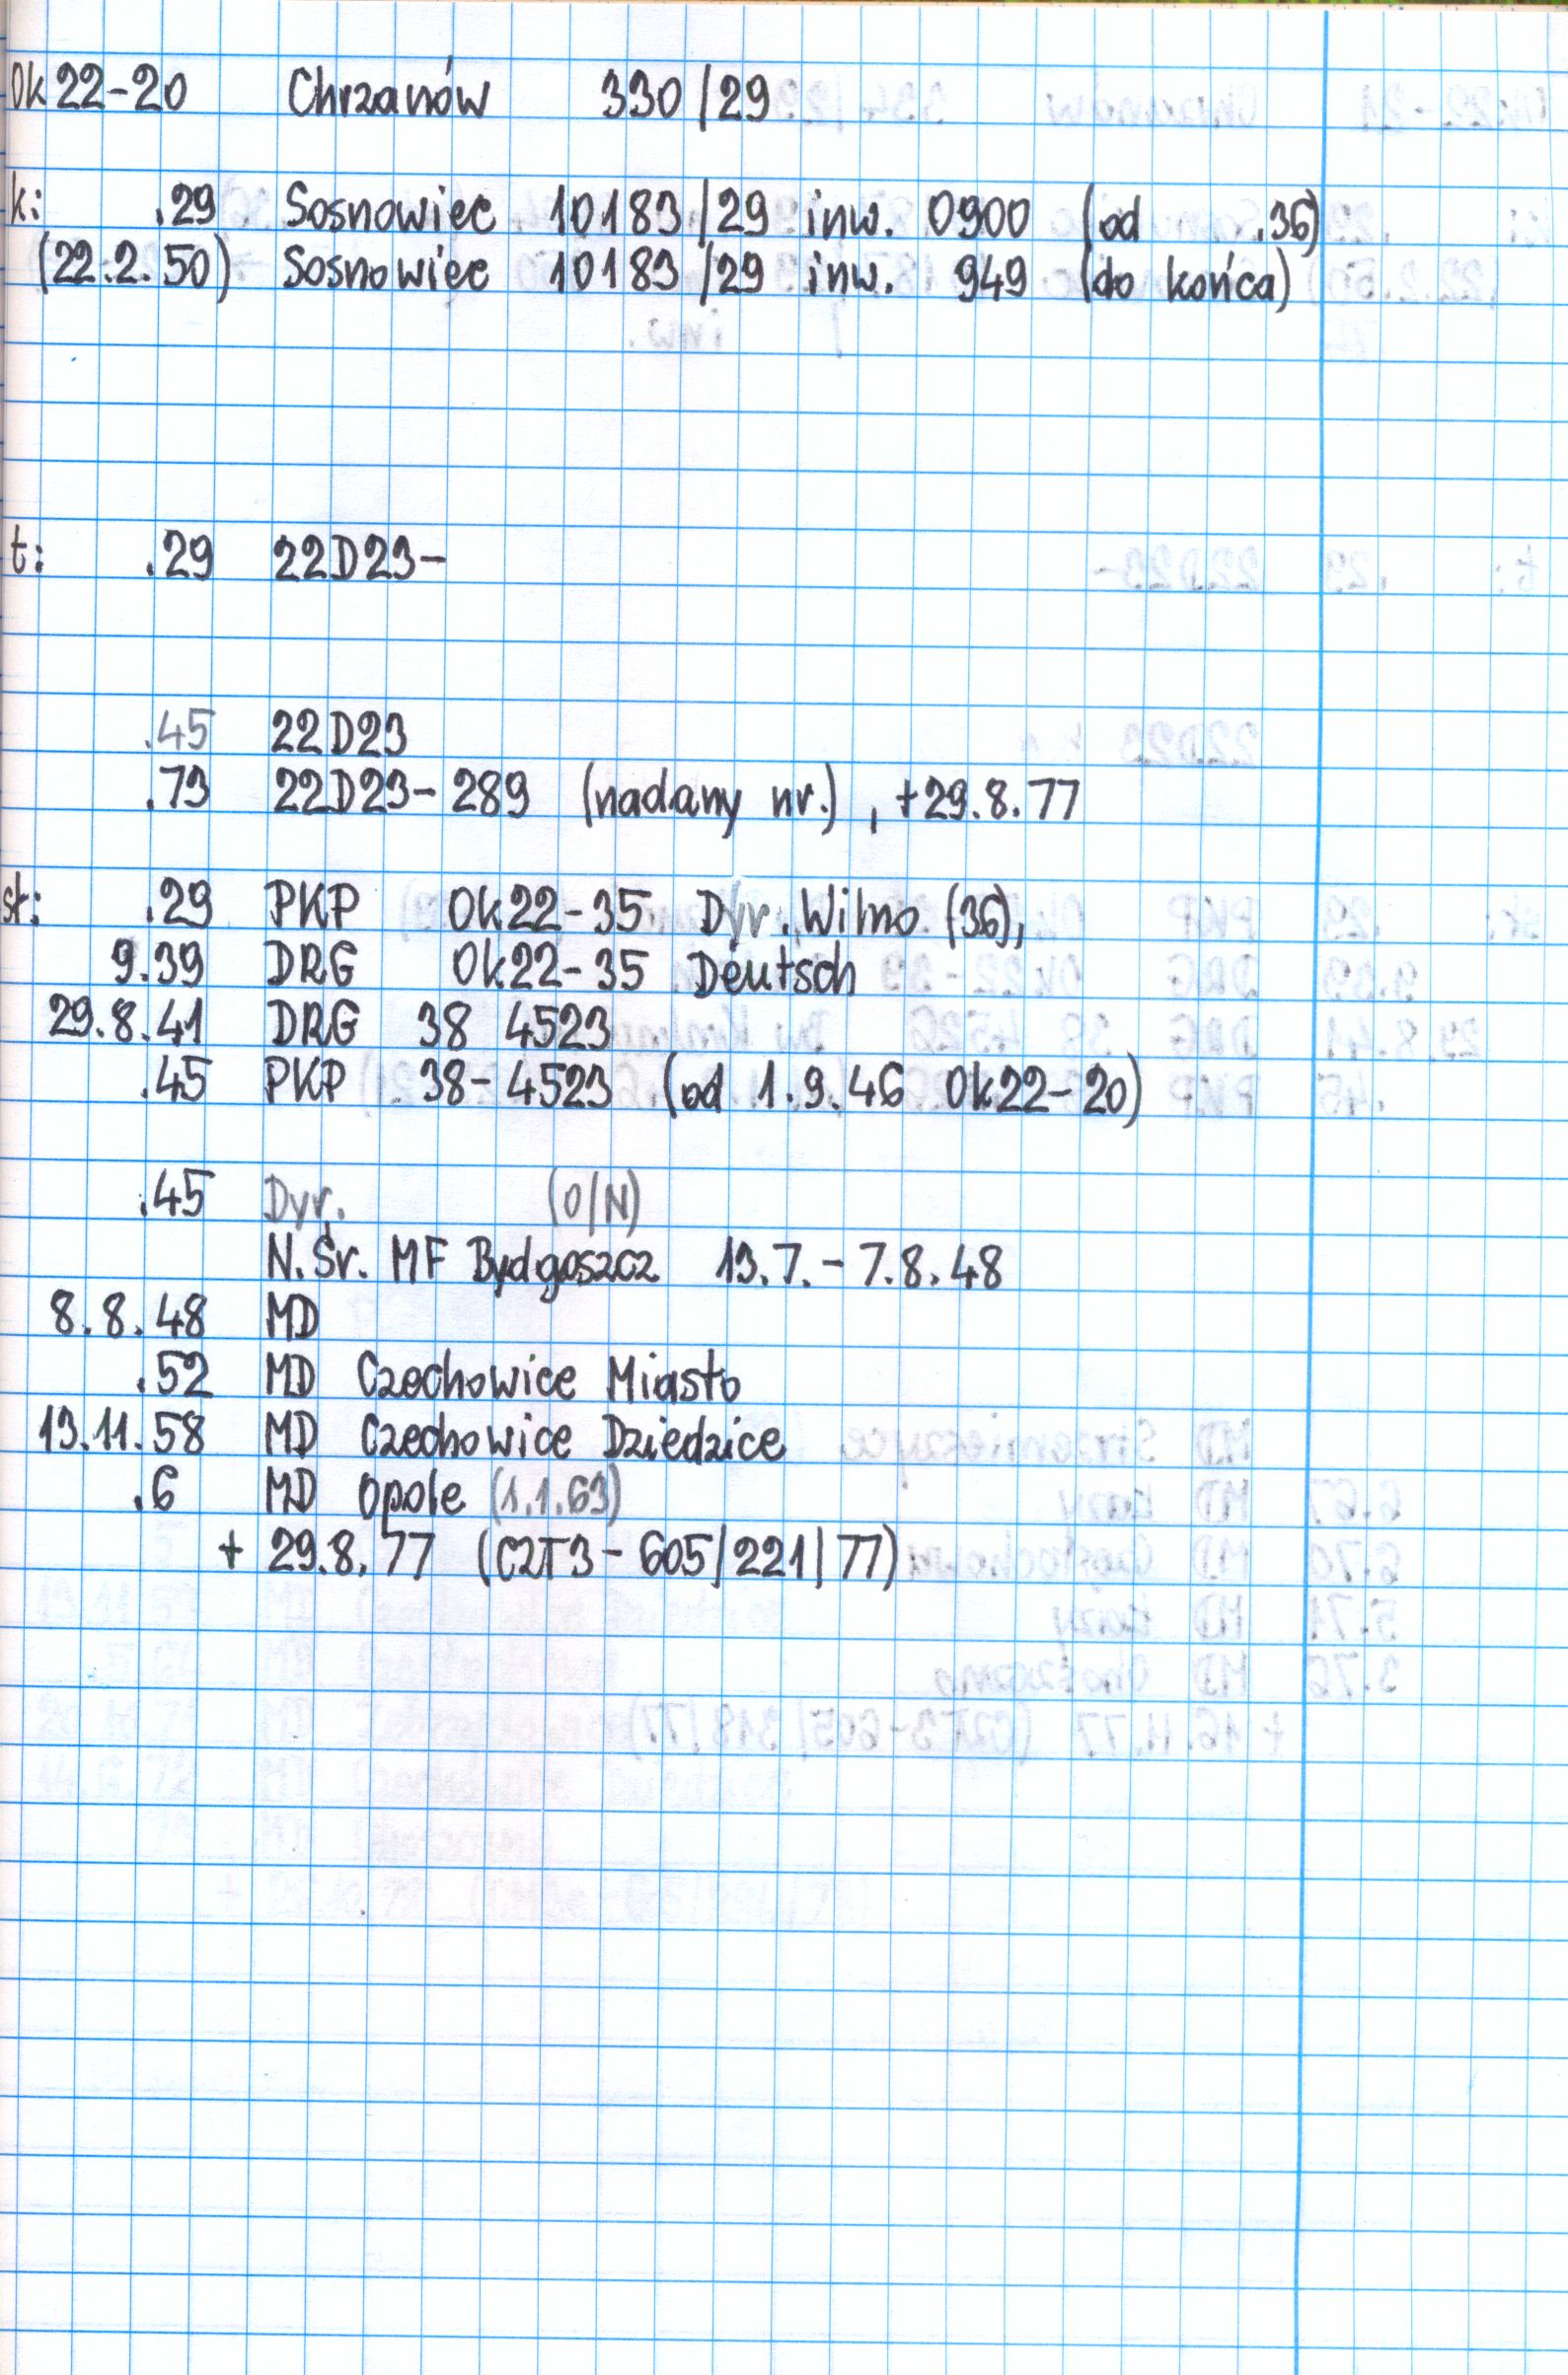 Ok22-20 Chrzanów 330/29
k: .29 Sosnowiec 10183/29 inw. 0900 (od .36)
(22.2.50) Sosnowiec 10183/29 inw. 949 (do końca)
t: .29 22D23-
.45 22D23
.73 22D23-289 (nadany nr.), +29.8.77
st: .29 PKP Ok22-35 Dyr. Wilno (36),
9.39 DRG Ok22-35 Deutsch
29.8.41 DRG 38 4523
.45 PKP 38-4523 (od 1.9.46 Ok22-20)
.45 Dyr. (O/N)
N.Śr. MF Bydgoszcz 13.7.-7.8.48
8.8.48 MD
.52 MD Czechowice Miasto
13.11.58 MD Czechowice Dziedzice
.6 MD Opole (1.1.63)
+ 29.8.77 (C2T3-605/221/77)